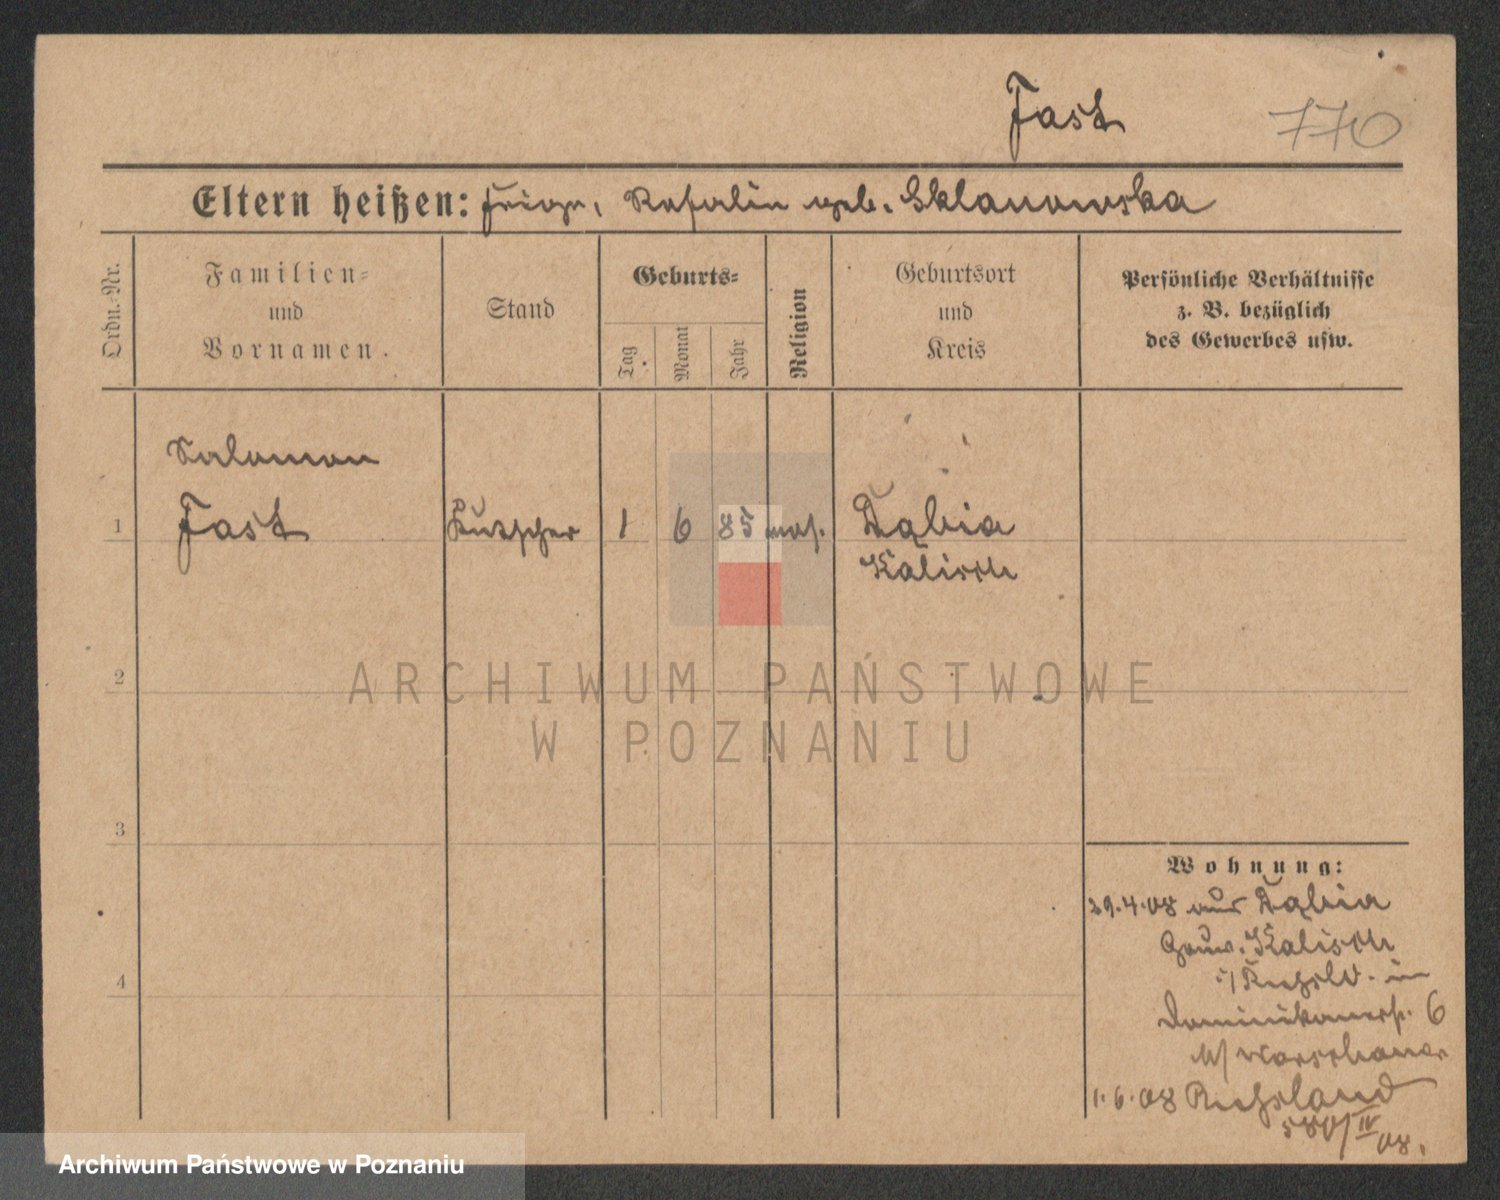 Fast 770
Eltern heißen: Feige, Rosalin geb. Sklanowska
Ordn.-Nr.
Familien-
und
Vornamen.
Stand
Geburts-
Tag
Monat
Jahr
Religion
Geburtsort
und
Kreis
Persönliche Verhältnisse
z. B. bezüglich
des Gewerbes usw.
Salomon
1 Fast Kutscher 1 6 85 mos. Dąbia
Kalisch
2
3
4
Wohnung:
29.4.08 aus Dąbia
Gouv. Kalisch
i/Rußld. in
Dominikanerstr. 6
b/ Warschauer
1.6.08 Russland
580/IV 08.
ARCHIWUM PAŃSTWOWE
W POZNANIU
Archiwum Państwowe w Poznaniu